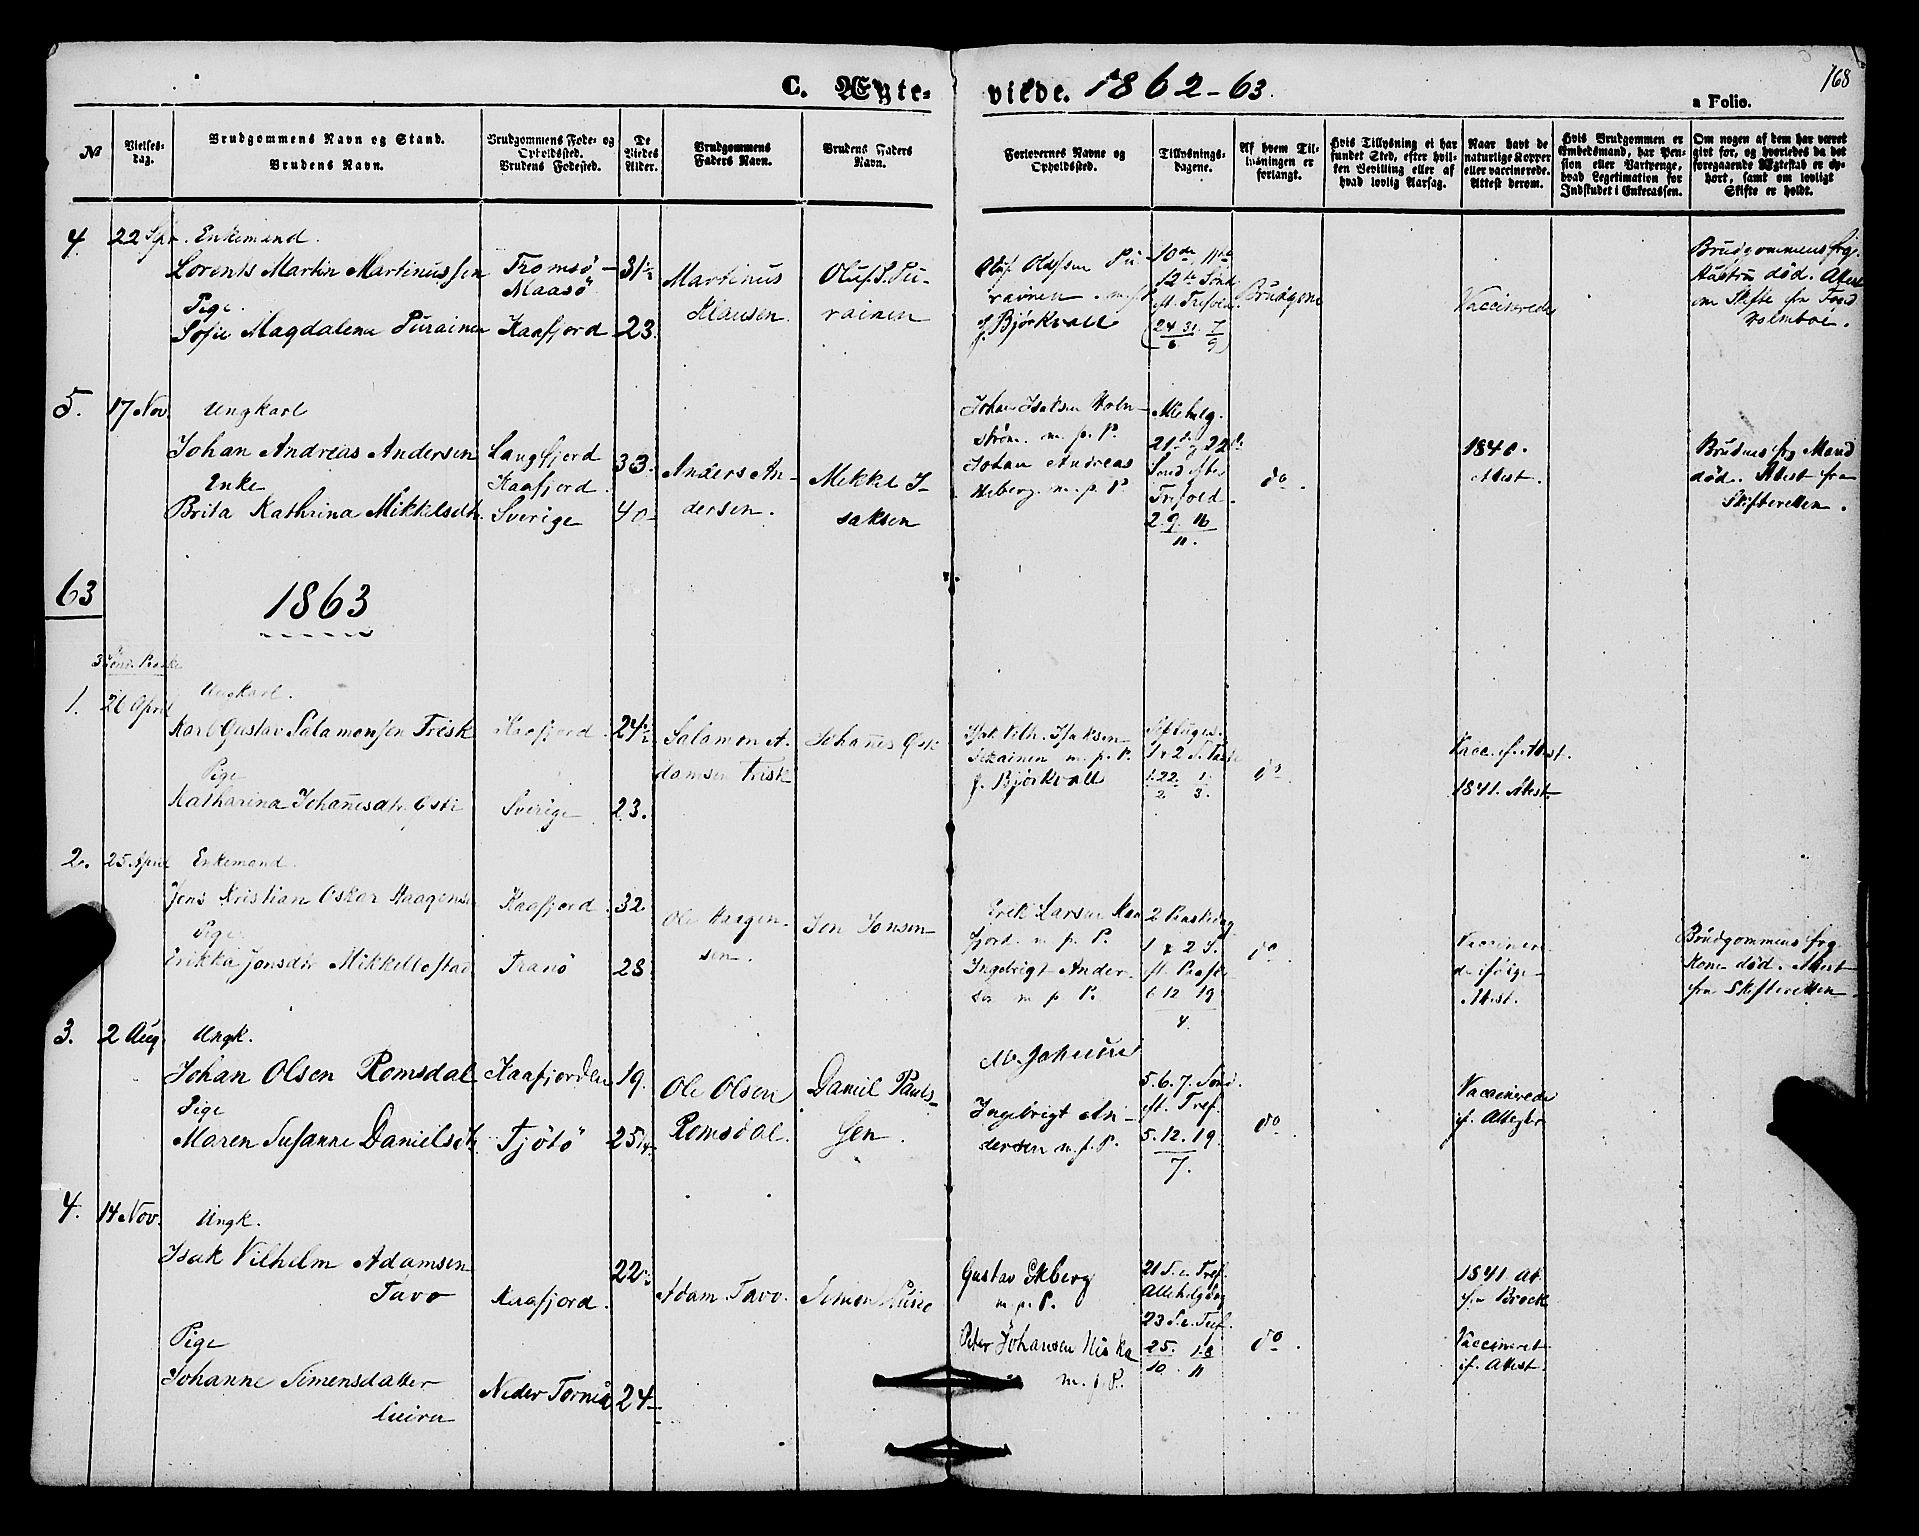 C. Ægte-
viede. 1862-63.
168
a Folio.
№
Vielses-
dag.
Brudgommens Navn og Stand.
Brudens Navn.
Brudgommens Føde- og
Opholdssted.
Brudens Fødested.
De
Viedes
Alder.
Brudgommens
Faders Navn.
Brudens Faders
Navn.
Forlovernes Navne og
Opholdssted.
Tillysnings-
dagene.
Af hvem Til-
lysningen er
forlangt.
Hvis Tillysning ei har
fundet Sted, efter hvil-
ken Bevilling eller af
hvad lovlig Aarsag.
Naar havt de
naturlige Kopper
eller vaccinerede.
Attest derom.
Hvis Brudgommen er
Embedsmand, har Pen-
sion eller Vartpenge,
hvad Legetimation for
Indskudet i Enkecassen.
Om nogen af dem har været
gift for, og hvorledes da det
foregaaende Ægteskab er op-
hørt, samt om lovligt
Skifte er holdt.
4.
22
Enkemand.
Lorents Martin Martinussen
Pige.
Sofie Magdalena Purainen
Tromsø-
Maasø
Kaafjord
31½
23.
Martinus
Klausen.
Oluf Pu-
rainen
Oluf Olofsen Pu-
rainen
J. Björkvall
10de, 11te
12te Sønd.
eft. Trefold.
24 31 7
Brudgom
Vaccinerede
Brudgommens frg.
Hustru død. Attest
om Skifte fra Fogd
Holmboe.
5.
17 Nov.
Ungkarl
Johan Andreas Andersen
Enke
Brita Kathrina Mikkelsdtr.
Langfjord
Kaafjord.
Sverige
33.
40
Anders An-
dersen.
Mikkel I-
saksen
Johan Isaksen Holm-
strøm m. p. P.
Johan Andreas
Heberg. m. p. P.
21de, 22de
Sønd. efter
Trefold.
2. 9. 16
11.
do.
1840.
Attest.
Brudens frg Mand
død. Attest fra
Skifteretten.
63
1863
1.
26 April
Ungkarl.
Karl Gustav Salamonsen Frisk
Pige
Katharina Johanesdtr.
Kaafjord.
Sverige
24½
23.
Salamon A-
damsen Frisk
Johanes
Isak Vilh. Isaksen
m. p. P.
J. Björkvall
1. 22. 1.
2. 3.
do.
Vacc. if. Attest.
1841. Attest.
2.
25. April
Enkemand.
Jens Kristian Oskar Haagensen
Pige.
Erikka Jonsdtr Mikkelbostad
Kaafjord.
Tranø
32
28
Ole Haagen-
sen.
Jon Jonsen
Erik Larsen Kaa-
fjord. m. p. P.
Ingebrigt Ander-
sen m p P.
1 & 2 S.
eft. Paaske
6. 12 19
4.
do
Vaccinere-
de ifølge
Attest.
Brudgommens frg.
Kone død. Attest
fra Skifteretten.
3.
2 Aug.
Ungk.
Johan Olsen Romsdal
Pige
Maren Susanne Danielsdtr.
Kaafjorden
Tjøtø
19.
25¼.
Ole Olsen
Romsdal.
Daniel Pauls-
sen.
Ingebrigt An-
dersen m. p. P.
5. 6. 7. Sønd.
eft. Tref.
5. 12. 19.
7.
do.
Vaccinerede
if. Attester
4.
14 Nov.
Ungk.
Isak Vilhelm Adamsen
Tavo
Pige
Johanne Simensdatter
Kaafjord.
Neder Torneå
22
24
Adam Tavo.
Simon
Gustav Ekberg
m. p. P.
Peter Johansen Niska
m. p P.
21 S. e. Tref.
Allehelgdag
23 S. e. Tref.
25. 1. 8
10. 11
do.
1841 At.
fra Brock
Vaccineret
if. Attest.